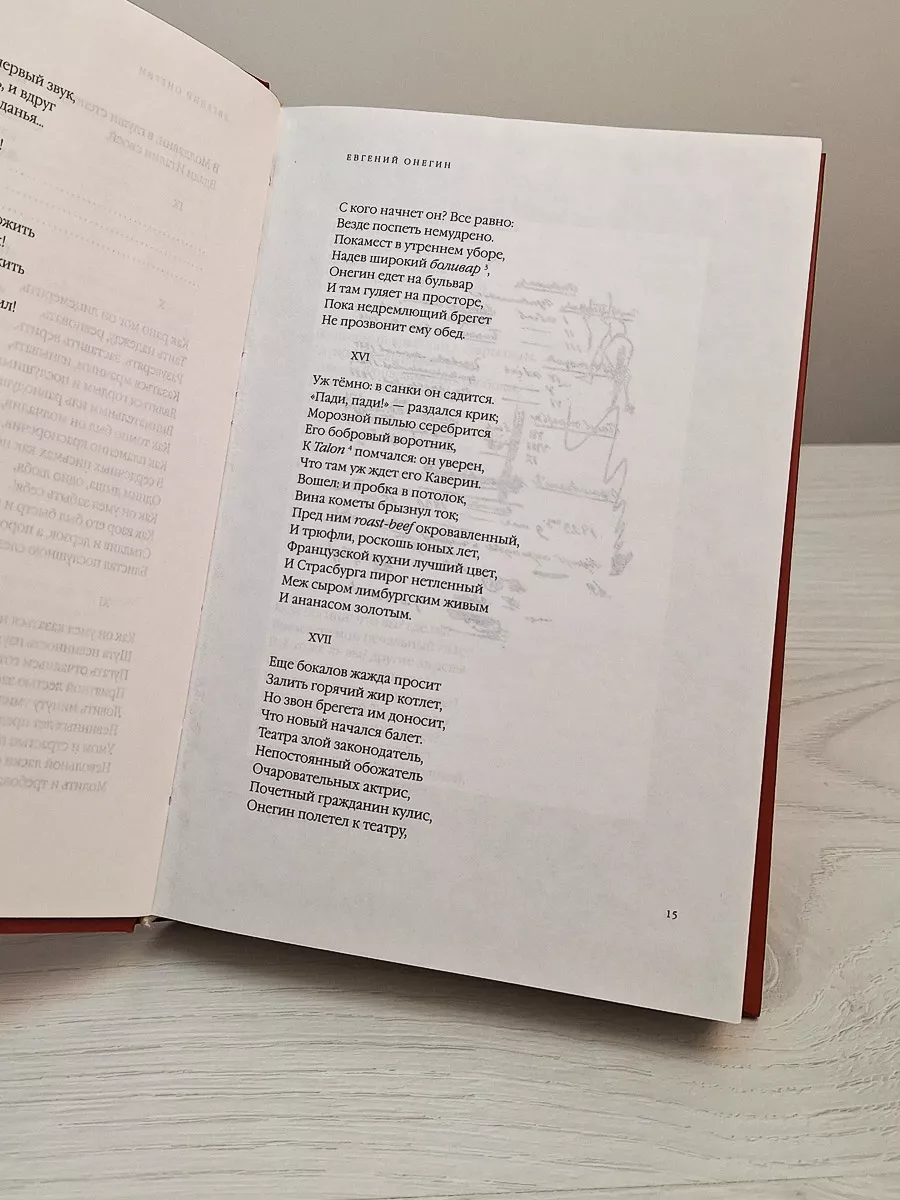 первый звук,
и вдруг
данья...
ожить
жить
ил!
ЕВГЕНИЙ ОНЕГИН
С кого начнет он? Все равно:
Везде поспеть немудрено.
Покамест в утреннем уборе,
Надев широкий боливар ³,
Онегин едет на бульвар
И там гуляет на просторе,
Пока недремлющий брегет
Не прозвонит ему обед.
XVI
Уж тёмно: в санки он садится.
«Пади, пади!» — раздался крик;
Морозной пылью серебрится
Его бобровый воротник,
К Talon ⁴ помчался: он уверен,
Что там уж ждет его Каверин.
Вошел: и пробка в потолок,
Вина кометы брызнул ток;
Пред ним roast-beef окровавленный,
И трюфли, роскошь юных лет,
Французской кухни лучший цвет,
И Страсбурга пирог нетленный
Меж сыром лимбургским живым
И ананасом золотым.
XVII
Еще бокалов жажда просит
Залить горячий жир котлет,
Но звон брегета им доносит,
Что новый начался балет.
Театра злой законодатель,
Непостоянный обожатель
Очаровательных актрис,
Почетный гражданин кулис,
Онегин полетел к театру,
15